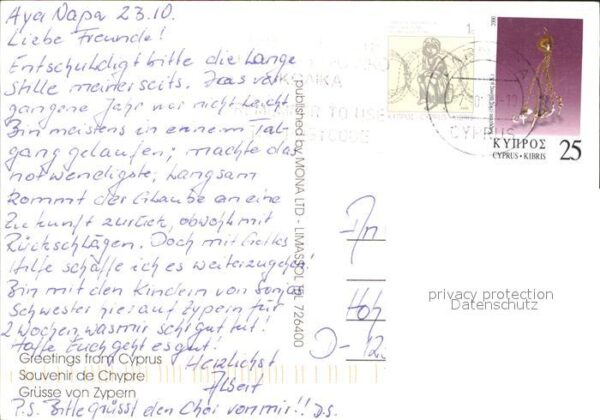 Aya Napa 23.10.
Liebe Freunde!
Entschuldigt bitte die lange
Stille meinerseits. Das ver-
gangene Jahr war nicht leicht
Bin meistens in einem Tal-
gang gelaufen; machte das
notwendigste; Langsam
kommt der Glaube an eine
Zukunft zurück, obwohl mit
Rückschlägen. Doch mit Gottes
Hilfe schaffe ich es weiterzugehen!
Bin mit den Kindern von
Schwester hier auf Zypern für
2 Wochen, was mir sehr gut tut!
Hoffe Euch geht es gut!
Herzlichst
Albert
P.S. Bitte grüsst den Chor von mir!! D.S.
Greetings from Cyprus
Souvenir de Chypre
Grüsse von Zypern
published by MONA LTD - LIMASSOL TEL 726400
ΚΥΠΡΟΣ
CYPRUS · KIBRIS
25
2000
1c
TO USE
POSTCODE
CYPRUS
privacy protection
Datenschutz